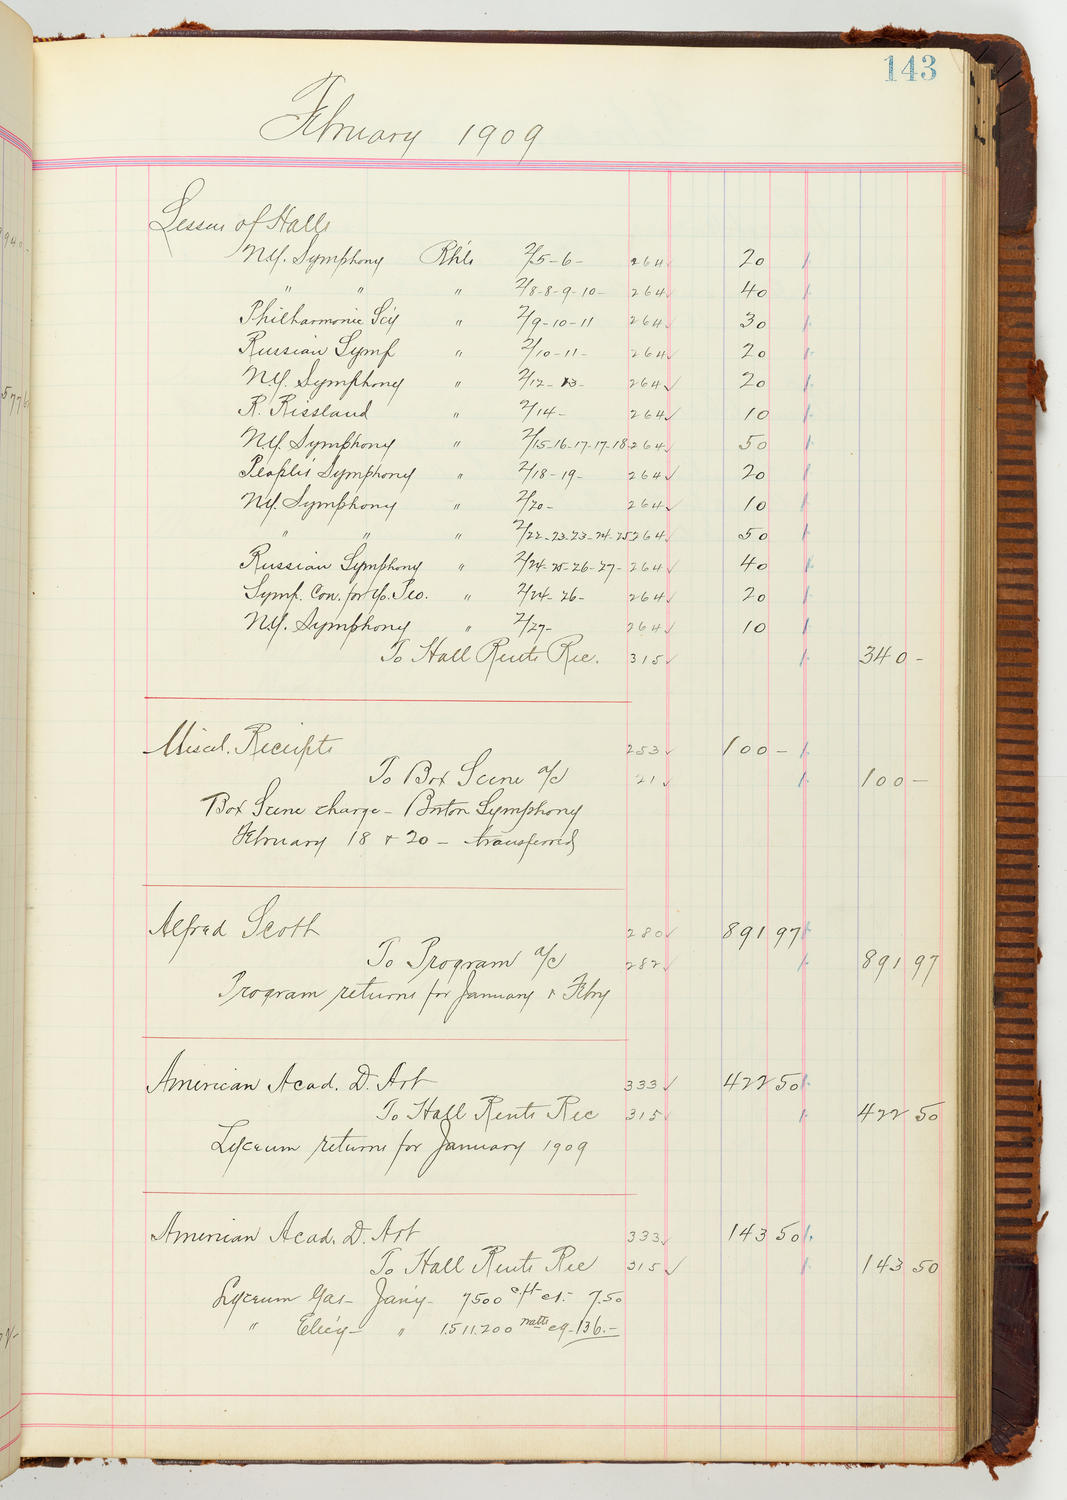 143
February 1909
Lessees of Halls
N.Y. Symphony Rh'ls 2/5-6- 264 20
" " " 2/8-8-9-10- 264 40
Philharmonic Sc'y " 2/9-10-11 264 30
Russian Symf " 2/10-11- 264 20
N.Y. Symphony " 2/12-13- 264 20
R. Rissland " 2/14- 264 10
N.Y. Symphony " 2/15-16-17-17-18 264 50
Peoples Symphony " 2/18-19- 264 20
N.Y. Symphony " 2/20- 264 10
" " " 2/22-23-23-24-25 264 50
Russian Symphony " 2/24-25-26-27- 264 40
Symf. Con. for Yg. Peo. " 2/24-26- 264 20
N.Y. Symphony " 2/27- 264 10
To Hall Rents Rec. 315 340-
Miscel. Receipts 253 100-
To Box Scene a/c 21 100-
Box Scene charge - Boston Symphony
February 18 + 20 - transferred
Alfred Scott 280 891 97
To Program a/c 282 891 97
Program returns for January + Feb'y
American Acad. D. Art 333 422 50
To Hall Rents Rec 315 422 50
Lyceum returns for January 1909
American Acad. D. Art 333 143 50
To Hall Rents Rec 315 143 50
Lyceum Gas - Jan'y - 7500 c/ft 7.50
" Elec'y - " 1.511.200 watts 136.-